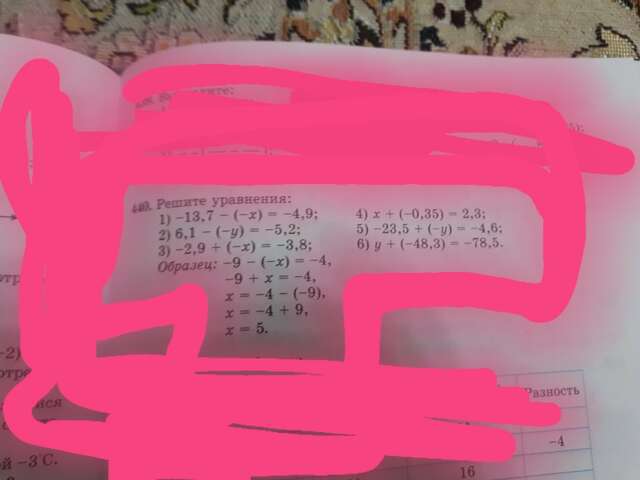 440. Решите уравнения:
1) –13,7 – (–x) = –4,9;
2) 6,1 – (–y) = –5,2;
3) –2,9 + (–x) = –3,8;
4) x + (–0,35) = 2,3;
5) –23,5 + (–y) = –4,6;
6) y + (–48,3) = –78,5.
Образец: –9 – (–x) = –4,
–9 + x = –4,
x = –4 – (–9),
x = –4 + 9,
x = 5.
–2)
Разность
–4
й –3°C.
16